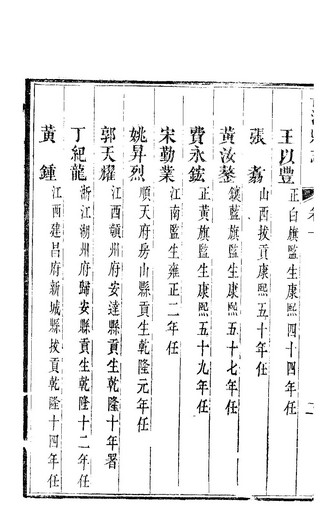 王以豐 正白旗監生康熙四十四年任
張翥 山西拔貢康熙五十年任
黃汝 鑲藍旗監生康熙五十七年任
費永 正黃旗監生康熙五十九年任
宋勤業 江南監生雍正二年任
姚昇烈 順天府房山縣貢生乾隆元年任
郭天耀 江西贛州府安遠縣貢生乾隆十年署
丁紀龍 浙江湖州府歸安縣貢生乾隆十二年任
黃鍾 江西建昌府新城縣拔貢乾隆十四年任